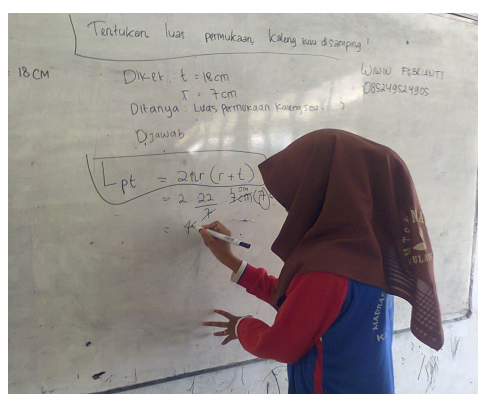 Tentukan luas permukaan kaleng susu disamping!
18 CM
Diket : t = 18cm
r = 7cm
Ditanya : Luas permukaan kaleng susu . . . ?
Djawab
Lpt = 2πr (r+t)
= 2 22/7 7cm (7
=
WIWIN FEBRIANTI
085249524905